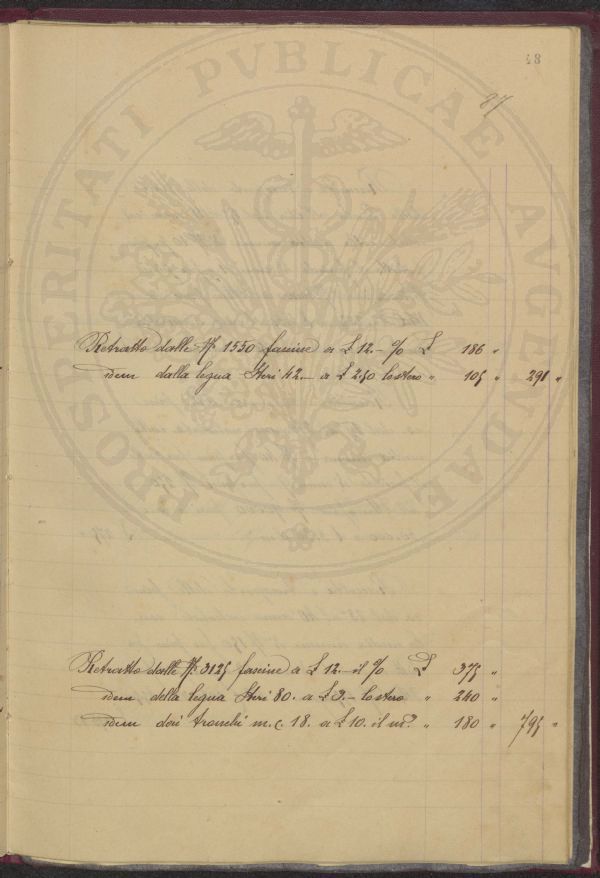 48
87
PROSPERITATI PVBLICAE AVGENDAE
Retratto dalle N. 1550 fascine a £ 12.- % £ 186 "
idem dalla legna Steri 42.- a £ 2.50 lo stero " 105 " 291 "
Retratto dalle N. 3125 fascine a £ 12.- il % £ 375 "
idem della legna Steri 80. a £ 3.- lo stero " 240 "
idem dei tronchi m.c. 18. a £ 10. il m.³ " 180 " 795 "